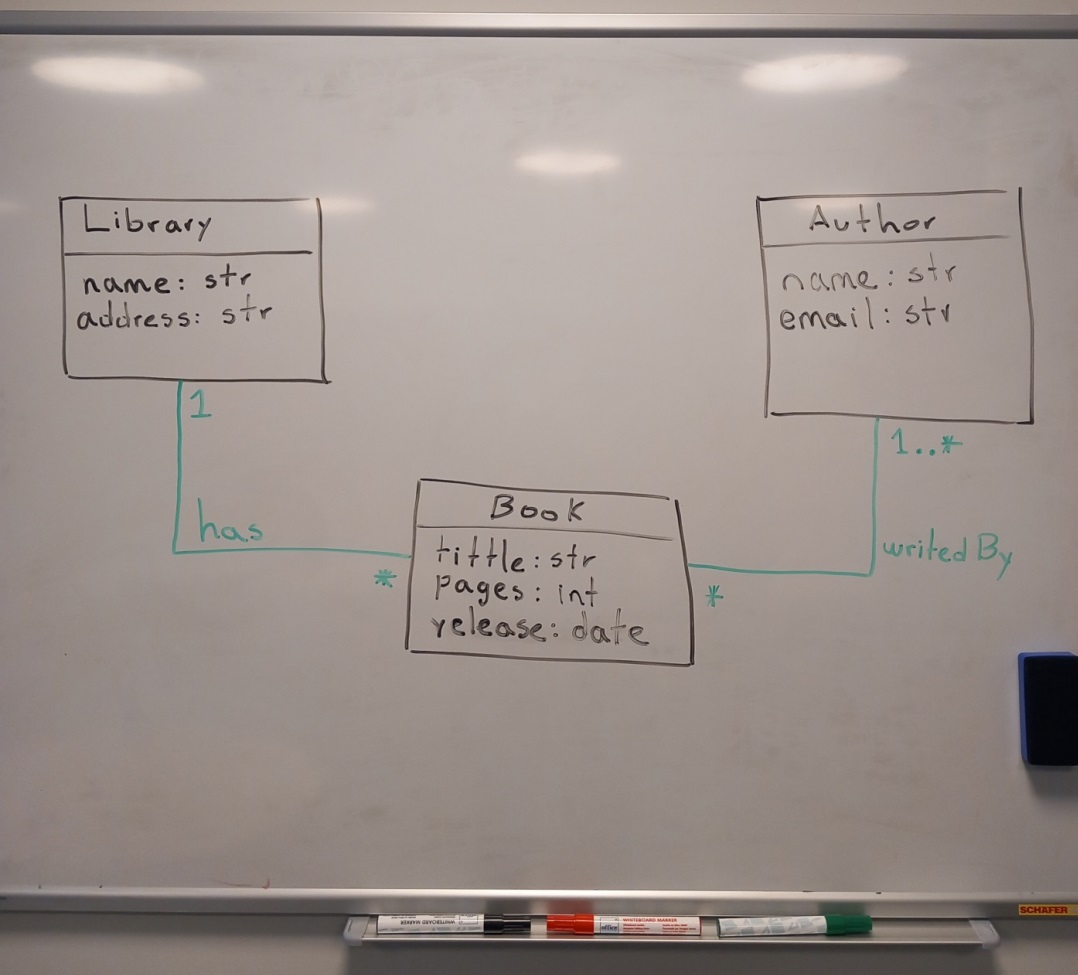 Library
name: str
address: str
Author
name: str
email: str
1
1..*
has
*
Book
tittle: str
pages: int
release: date
writed By
*
SCHÄFER
WHITEBOARD MARKER
office
WHITEBOARD MARKER